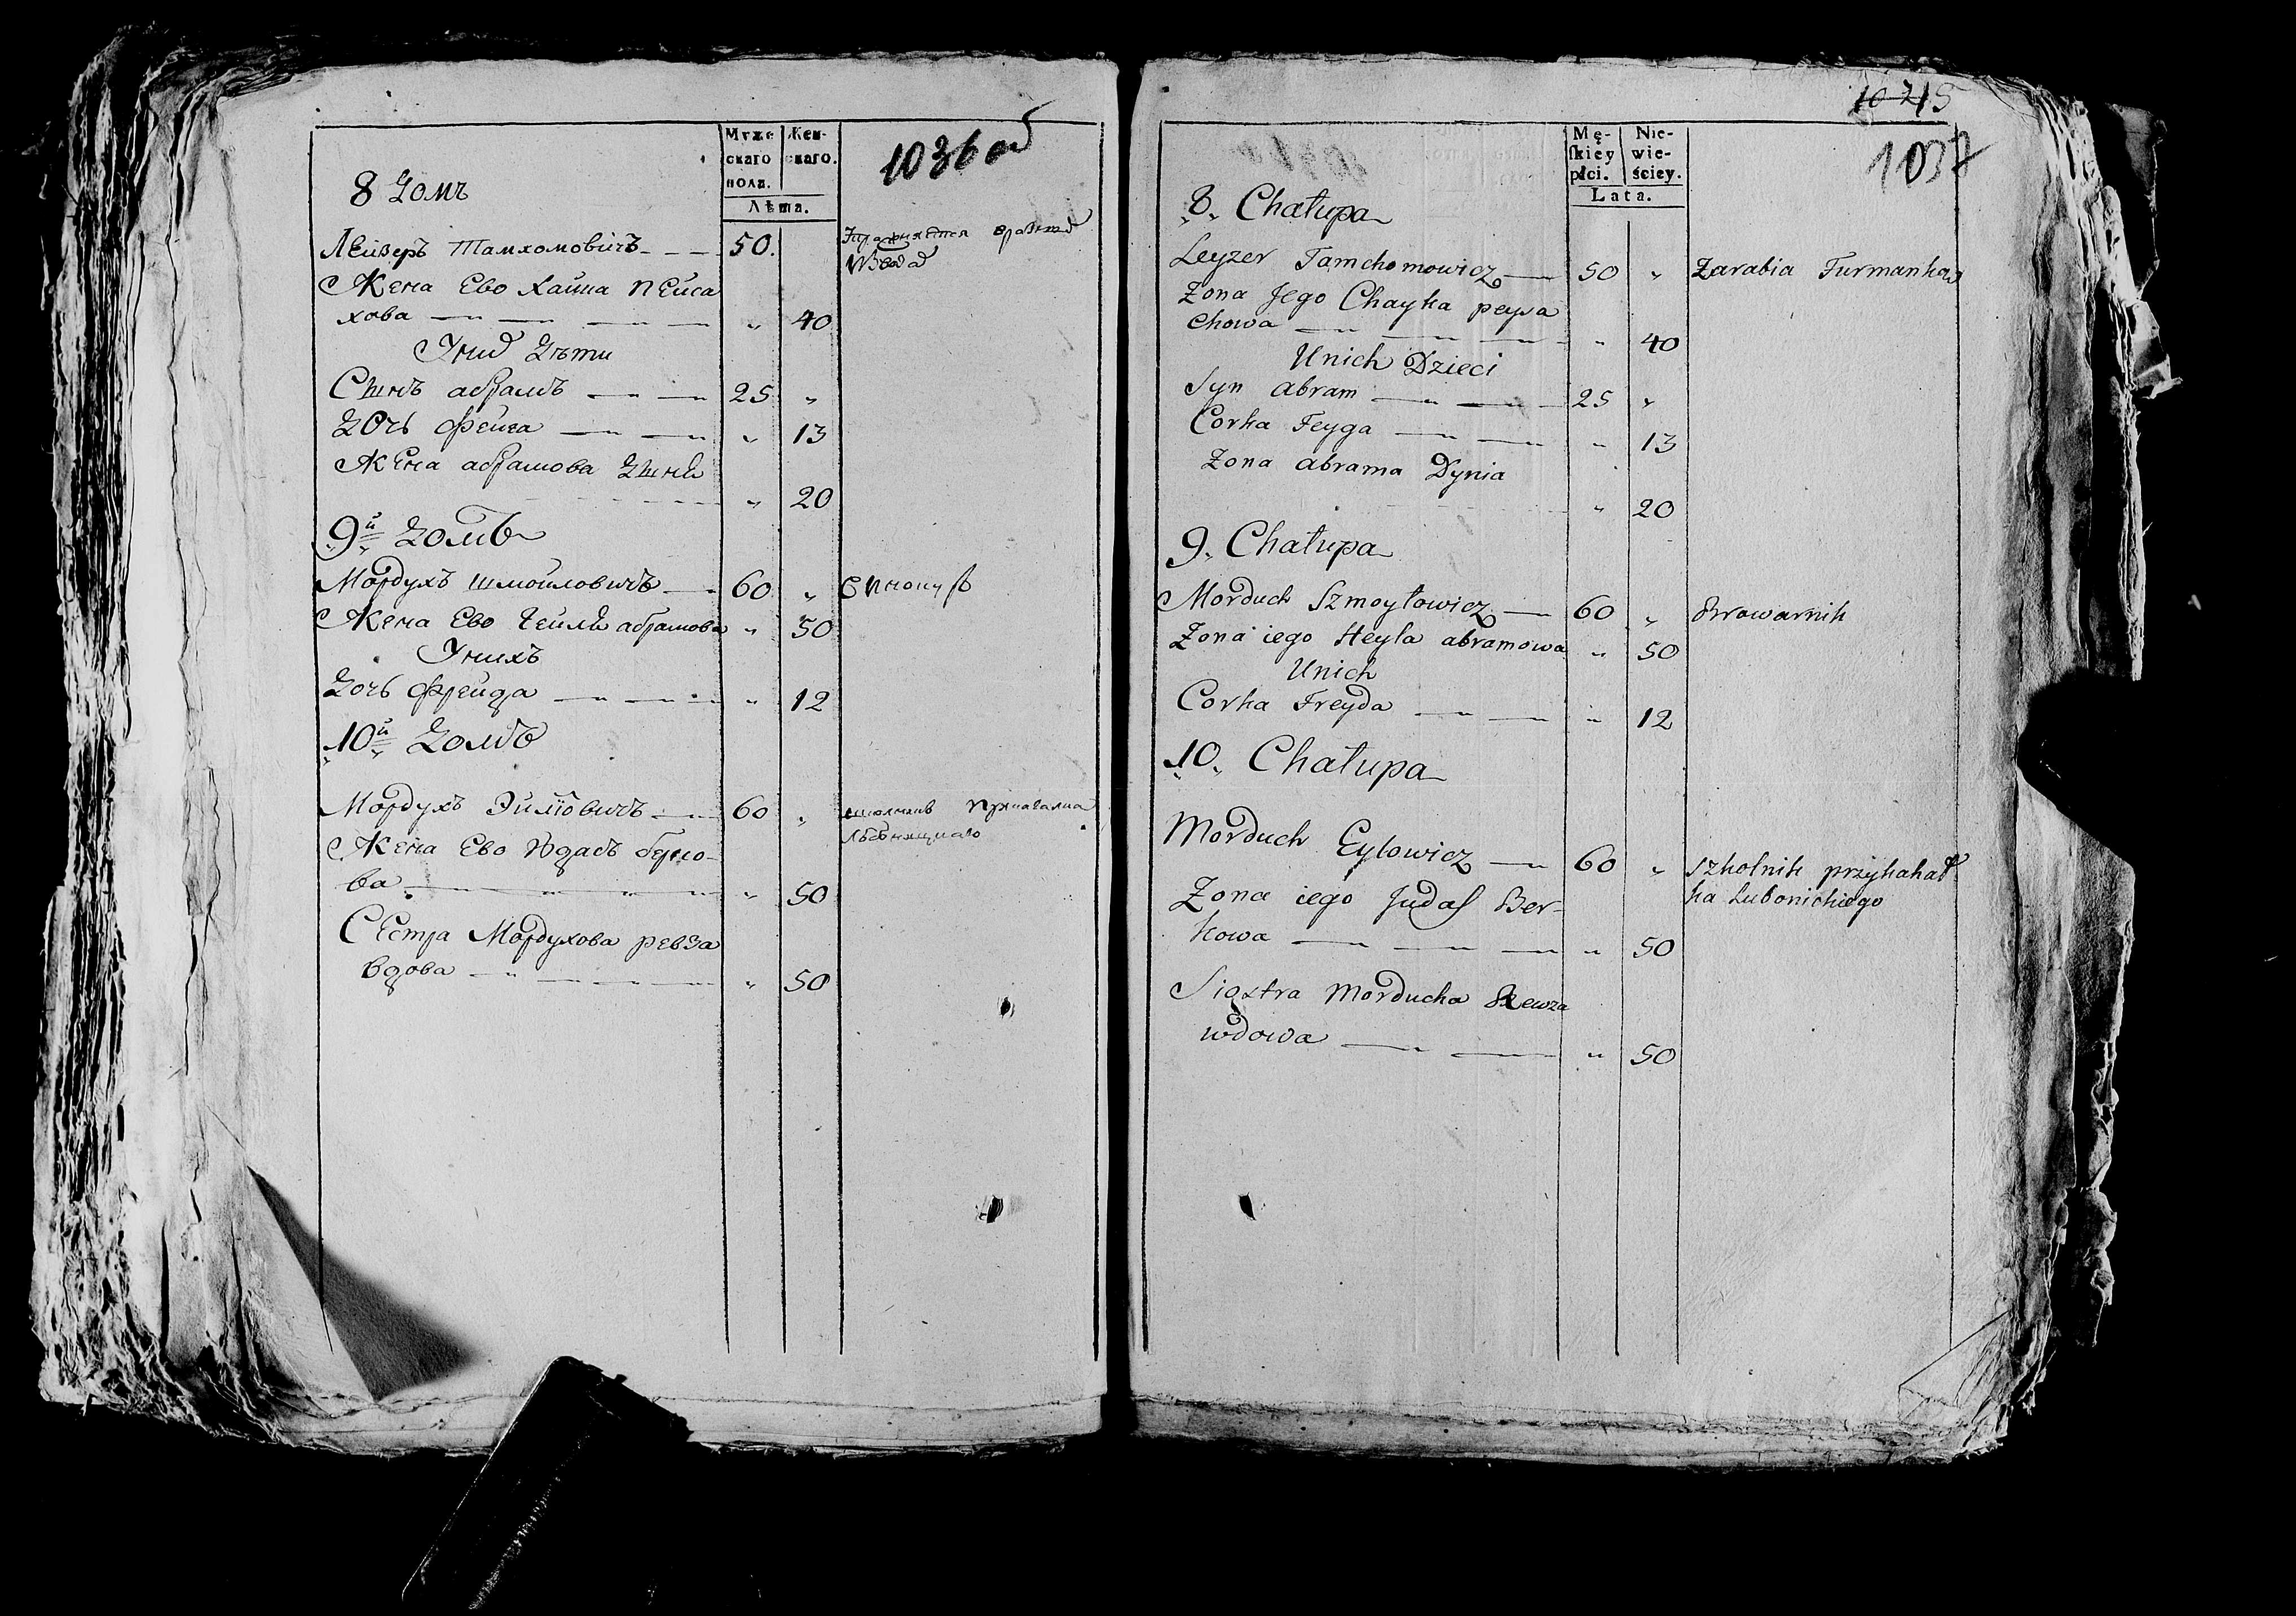 Муже
скаго
пола.
Жен-
скаго.
Лѣта.
1036 об
8 Домъ
Лейзеръ Тамхомовичъ 50.
Жена Ево Хайка Пейса
хова „ 40
Уних Дѣти
Сынъ абрамъ 25 „
Дочь Фейга „ 13
Жена абрамова Дыня
„ 20
9й Домъ
Мордухъ шмойловичъ 60 „
Жена Ево Гейля абрамова „ 50
Унихъ
Дочь Фрейда „ 12
10й Домъ
Мордухъ Эйліовичъ 60 „
Жена Ево Юдасъ берко-
ва „ 50
Сестра Мордухова ревза
вдова „ 50
1037
Mę-
ſkiey
płci.
Nie-
wie-
ściey.
Lata.
8. Chałupa
Leyzer Tamchomowicz 50 „ Zarabia Furmanką
Zona Jego Chayka peysa
chowa „ 40
Unich Dzieci
Syn abram 25 „
Corka Feyga „ 13
Zona abrama Dynia
„ 20
9. Chałupa
Morduch Szmoyłowicz 60 „ Browarnik
Zona iego Heyla abramowa „ 50
Unich
Corka Freyda „ 12
10. Chałupa
Morduch Eylowicz 60 „ Szkolnik przykahał
ka Lubonickiego
Zona iego Judaſ Ber-
kowa „ 50
Siostra Morducha Rewza
wdowa „ 50